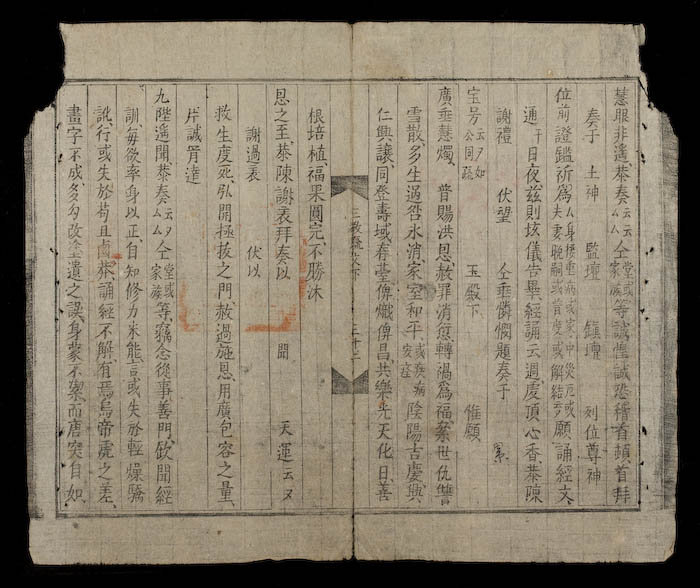 慧眼非遥恭奏云云仝堂或家族等誠惶誠恐稽首頓首拜
奏于 土神 監壇 鎮壇 列位尊神
位前證鑑祈為厶身接重病或家中災厄或厶夫妻晚嗣或普度或解結云云願誦經文
通于日夜兹則垓儀告畢經誦云週慶頂心香恭陳
謝禮 伏望 仝垂憐憫題奏于
宝号云又如公同疏 玉殿下 惟願
廣垂慧燭 普賜洪恩赦罪消愆轉禍為福累世仇讐
雪散多生過咎氷消家室和平或疾病安痊陰陽吉慶興
仁興讓同登壽域春臺俾熾俾昌共樂光天化日善
三教疏文下 三十二
根培植福果圓完不勝沐
恩之至恭陳謝表拜奏以 聞 天運云又
謝過表 伏以
救生度死弘開拯拔之門赦過施恩用廣包容之量
片誠胥達
九陛遥開恭奏云又厶厶仝堂或家族等竊念後事善門欽聞經
訓每欲率身以正自知修力未能言或失於輕燥驕
訛行或失於苟且鹵莽誦經不解有焉烏帝虎之差
畫字不成多勾改塗遺之誤身蒙不潔而唐突自如